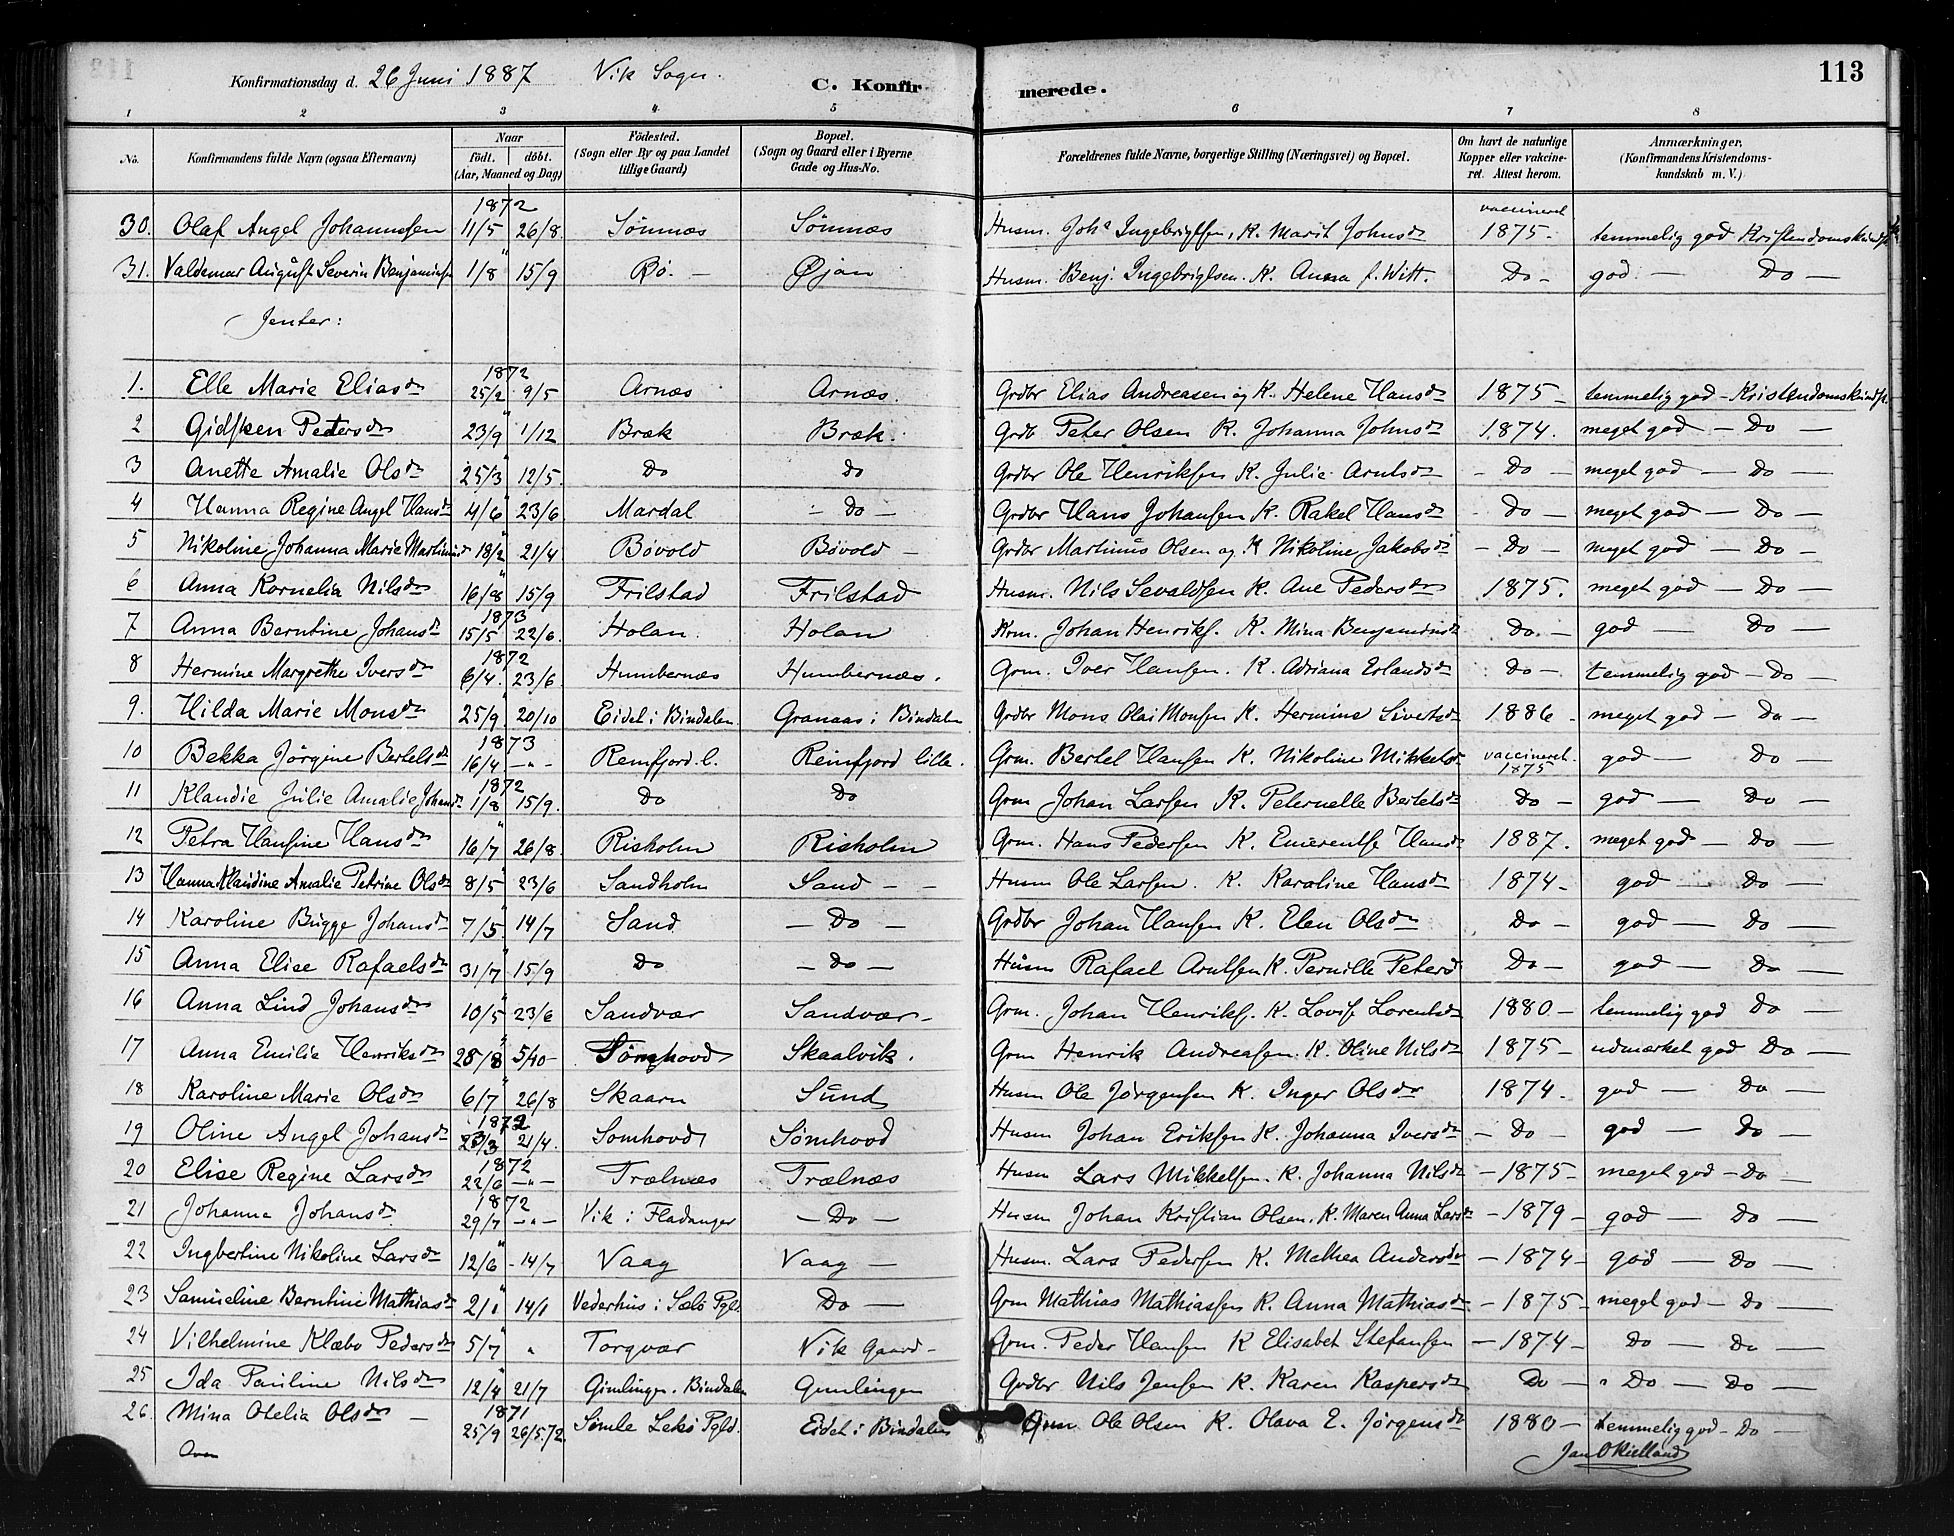 Konfirmationsdag d. 26 Juni 1887 Vik Sogn. C. Konfirmerede. 113
1 2 3 4 5 6 7 8
No. Konfirmandens fulde Navn (ogsaa Efternavn) Naar födt. döbt. (Aar, Maaned og Dag) Födested. (Sogn eller By og paa Landet tillige Gaard) Bopæl. (Sogn og Gaard eller i Byerne Gade og Hus-No. Forældrenes fulde Navne, borgerlige Stilling (Næringsvei) og Bopæl. Om havt de naturlige Kopper eller vaccineret. Attest herom. Anmærkninger. (Konfirmandens Kristendomskundskab m. V.)
30. Olaf Angel Johannessen 1872 11/5 26/8. Sömnæs Sömnæs Husm. Johs Ingebrigtsen, K. Marit Johnsdr vaccineret 1875. temmelig god Kristendomskundsk.
31. Valdemar August Severin Benjaminsen " 1/8 15/9 Rö. — Øjan Husm. Benj. Ingebrigtsen. K. Anna f. Witt. Do — god — Do —
Jenter:
1. Elle Marie Eliasdr 1872 25/2 9/5 Arnæs Arnæs. Grdbr Elias Andreasen og K. Helene Hansdr 1875 — temmelig god — Kristendomskundsk.
2 Gidsken Petersdr " 23/9 1/12 Bræk Bræk. Grdb Peter Olsen K. Johanna Johnsdr 1874. meget god — Do —
3 Anette Amalie Olsdr " 25/3 12/5. Do Do Grdbr Ole Henriksen K. Julie Arntsdr — Do — meget god — Do —
4 Hanna Regine Angel Hansdr " 4/6 23/6 Mardal — Do — Grdbr Hans Johansen K. Rakel Hansdr — Do — meget god — Do —
5 Nikoline Johanna Marie Martinusd " 18/2 21/4 Bövold Bövold — Grdbr Martinus Olsen og K Nikoline Jakobsdr — Do — meget god — Do —
6 Anna Kornelia Nilsdr " 16/8 15/9 Frilstad Frilstad Husm. Nils Sevaldsen K. Ane Pedersdr 1875. meget god — Do —
7 Anna Berntine Johansdr 1873 15/5 22/6. Holan. Holan Krm. Johan Henriks. K. Mina Benjaminsdr Do. — god — Do —
8 Hermine Margrethe Iversdr 1872 6/4. 23/6 Humbernæs Humbernæs. Grm. Iver Hansen. K. Adriana Erlandsdr Do — temmelig god — Do —
9. Hilda Marie Monsdr " 25/9 20/10 Eidet i Bindalen Granaas i Bindalen Grdbr Mons Olai Monsen K. Hermine Sivertsdr 1886 — meget god — Do —
10 Bekka Jörgine Bertelsdr 1873 16/4 —"— Remfjord l. Reinfjord lille. Grm. Bertel Hansen K. Nikoline Mikkelsdr vaccineret 1875 god — Do —
11 Klaudie Julie Amalie Johansdr 1872 1/8 15/9. Do Do Grm Johan Larsen K. Peternelle Bertelsdr Do — god — Do —
12 Petra Hansine Hansdr " 16/7 26/8. Risholm Risholm Grm. Hans Pedersen K. Emerentse Hansdr 1887. meget god — Do —
13 Hanna Klaudine Amalie Petrine Olsdr " 8/5 23/6 Sandholm Sand — — Husm Ole Larsen. K. Karoline Hansdr 1874 — god — Do —
14 Karoline Bugge Johansdr " 7/5 14/7 Sand — Do — Grdbr Johan Hansen K. Elen Olsdr Do — god — Do —
15 Anna Elise Rafaelsdr " 31/7 15/9 Do — Do — Husm Rafael Arntsen K. Pernille Petersd Do — god — Do —
16 Anna Lind Johansdr " 10/5 23/6 Sandvær Sandvær — Grm. Johan Henriks. K. Lovise Lorentsdr 1880 — temmelig god Do —
17 Anna Emilie Henriksdr " 28/8 5/10 — Sömhovd Skaalvik. Grm Henrik Andreasen. K. Oline Nilsdr 1875 — udmærket god Do —
18 Karoline Marie Olsdr " 6/7 26/8 Skaarn Sund Husm Ole Jörgensen K. Inger Olsdr 1874. god — Do —
19 Oline Angel Johansdr 1872 23/3 21/4. Somhovd Sömhovd Husm Johan Eriksen K. Johanna Iversdr — Do — god — Do —
20 Elise Regine Larsdr 1872 22/6 —"— Trælnæs Trælnæs Husm Lars Mikkelsen. K. Johanna Nilsdr — 1875 — meget god — Do —
21 Johanna Johansdr 1872 29/7 —"— Vik i Fladanger — Do — Husm Johan Kristian Olsen. K. Maren Anna Larsdr — 1879 — god — Do —
22 Ingbertine Nikoline Larsdr " 12/6 — 14/7 Vaag Vaag — Husm. Lars Pedersen K. Mathea Andersdr — 1874 — god — Do —
23 Samueline Berntine Mathiasdr " 2/1 14/1 Vederhus i Sælö Pgld. Do — Grm Mathias Mathiassen K. Anna Mathiasdr — 1875 — meget god — Do —
24 Vilhelmine Klæbo Pedersdr " 5/7 " Torgvær Vik Gaard — Grm. Peder Hansen K Elisabet Stefansen — 1874 — Do — Do —
25 Ida Pauline Nilsdr " 12/4 21/7 Gimlingen. Bindalen Gimlingen Grdbr Nils Jensen K. Karen Kaspersdr Do — " Do — Do —
26. Mina Otelia Olsdr — 1871 25/9 26/5.72. Simle Lekö Pgld. Eidet i Bindalen Grm Ole Olsen K. Olava E. Jörgensdr 1880 — temmelig god — Do —
Jan O Kielland